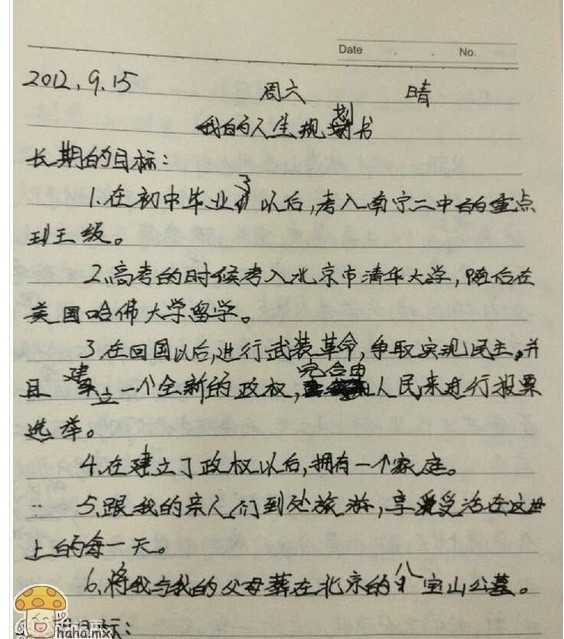 Date . . No.
2012.9.15 周六 晴
我的人生规划书
长期的目标:
1.在初中毕业了以后,考入南宁二中的重点
班级。
2.高考的时候考入北京市清华大学,随后在
美国哈佛大学留学。
3.在回国以后,进行武装革命,争取实现民主,并
且建立一个全新的政权,完全由人民来进行投票
选举。
4.在建立了政权以后,拥有一个家庭。
5.跟我的亲人们到处旅游,享受生活在这世
上的每一天。
6.将我与我的父母葬在北京的八宝山公墓。
目标:
haha.mx